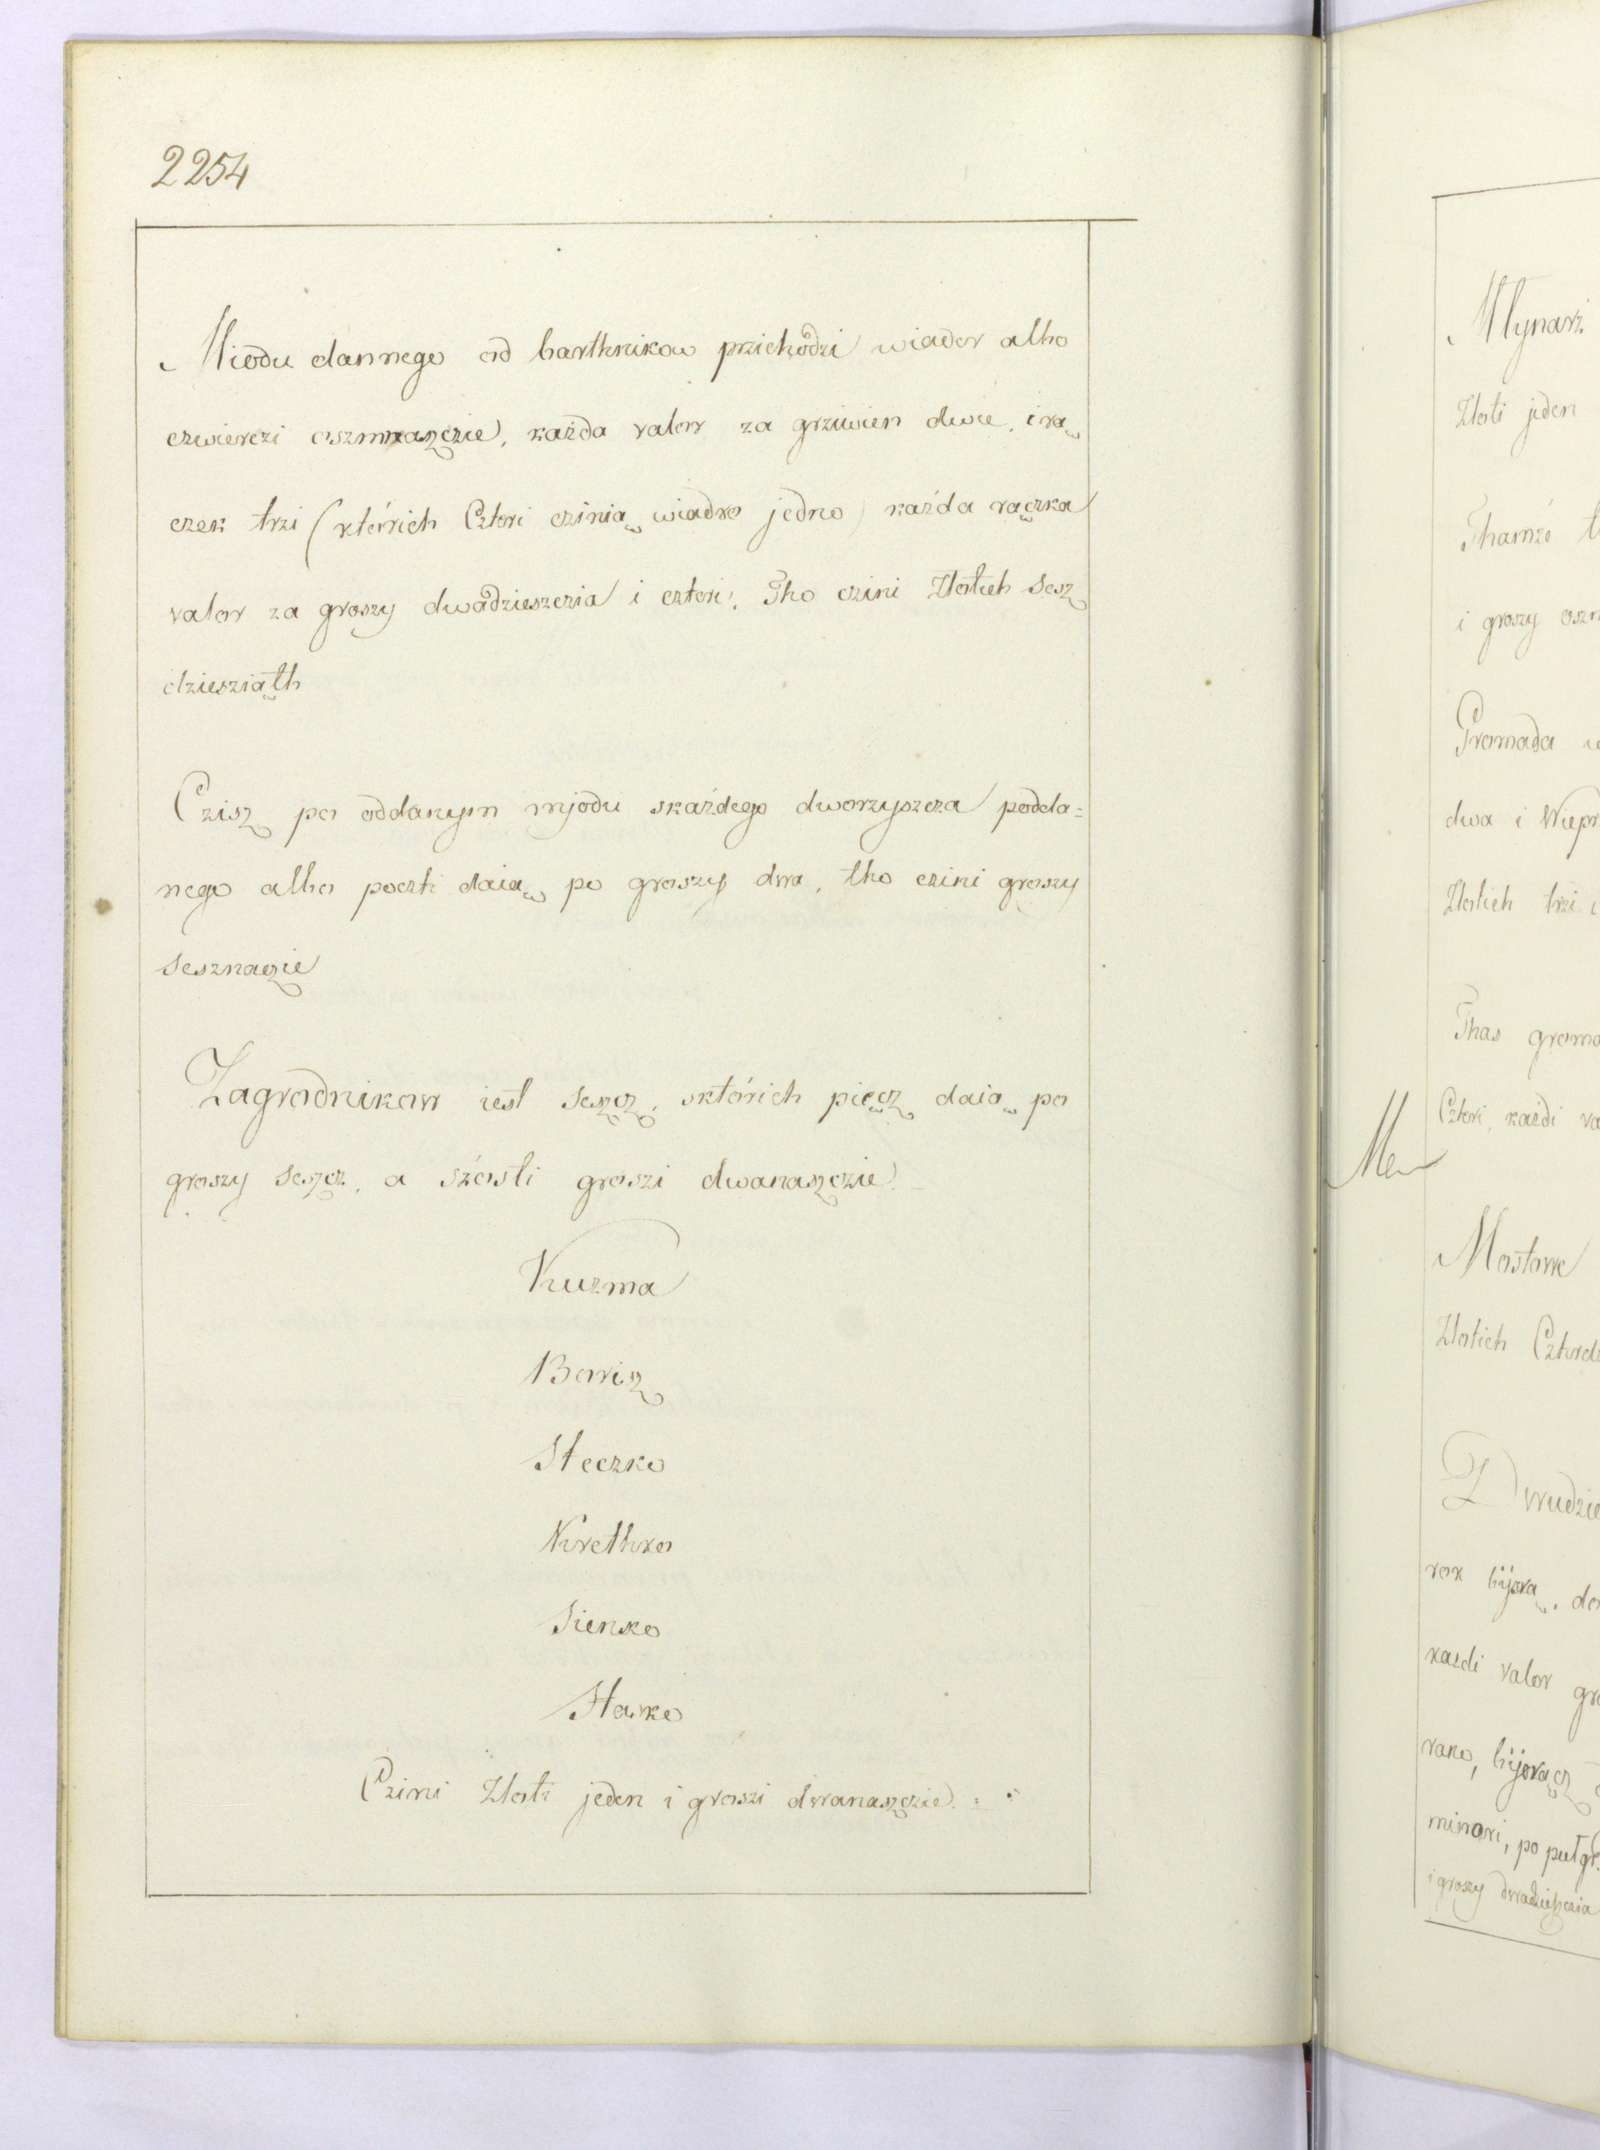 2254
Miodu dannego od barthnikow przichodzi wiador albo
czwierczi oszmnasczie, każda valor za grziwien dwie, i rą
czek trzi (którich Cztori czinią wiadro jedno) każda rączka
valor za groszy dwadzieszczia i cztori, Tho czini Zlotich szesz
dziesziąth
Czisz po oddanym mjodu skażdego dworzyszcza podda-
nego albo poczti daią po groszy dwa, tho czini groszy
sesznaczie
Zagrodnikow iest seszcz, sktórich pięcz daią po
groszy seszcz, a szósti groszi dwanasczie
Kuzma
Borisz
Steczko
Sienko
Staśko
Czini Zloti jeden i groszi dwanasczie
Mlynarz
Zloti jeden
Thamże
i groszy
Gromada
dwa i Wieprz
Zlotich trzi i
Thas
Cztori, każdi
Mostowe
Zlotich
rok bijorą, do
każdi valor
rano, bijorącz
po pułgr.
i groszy dwadzieszczia